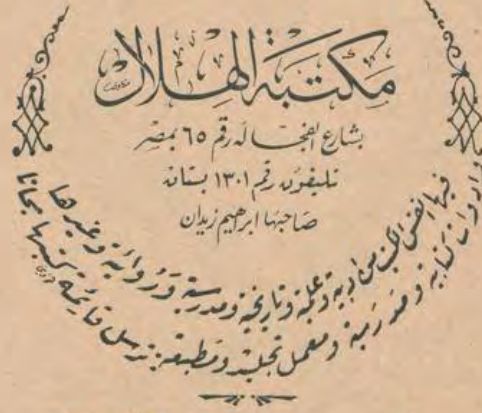 مكتبة الهلال
بشارع الفجالة رقم ٦٥ بمصر
تليفون رقم ١٣٠١ بستان
صاحبها ابراهيم زيدان
فيها انفس الكتب من ادبية وعلمية وتاريخية ومدرسية وروائية وغيرها
وادوات كتابية ومدرسية ومعمل تجليد ومطبعة : ترسل قائمة كتبها مجانا